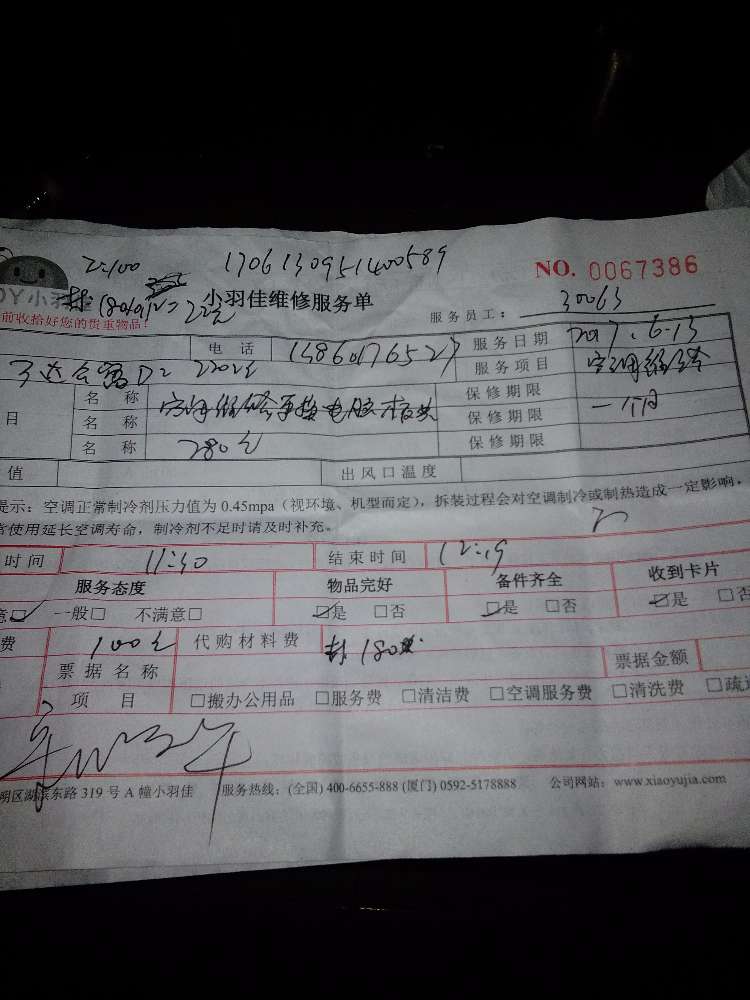 工:100 1706130951400589 NO. 0067386
OY小羽
小羽佳维修服务单
前收拾好您的贵重物品! 服务员工: 30063
电话 服务日期 2017.6.13
服务项目 空调维修
名称 保修期限
日 名称 空调维修更换电脑板共 保修期限 一个月
名称 280元 保修期限
值 出风口温度
提示:空调正常制冷剂压力值为 0.45mpa(视环境、机型而定),拆装过程会对空调制冷或制热造成一定影响,
使用延长空调寿命,制冷剂不足时请及时补充。
时间 11:30 结束时间 12:19
服务态度 物品完好 备件齐全 收到卡片
意☑ 一般□ 不满意□ ☑是 □否 ☑是 □否 ☑是 □否
费 100元 代购材料费 材180
票据名称 票据金额
项目 □搬办公用品 □服务费 □清洁费 □空调服务费 □清洗费 □疏
明区湖滨东路 319 号 A 幢小羽佳 服务热线:(全国) 400-6655-888 (厦门) 0592-5178888 公司网站:www.xiaoyujia.com